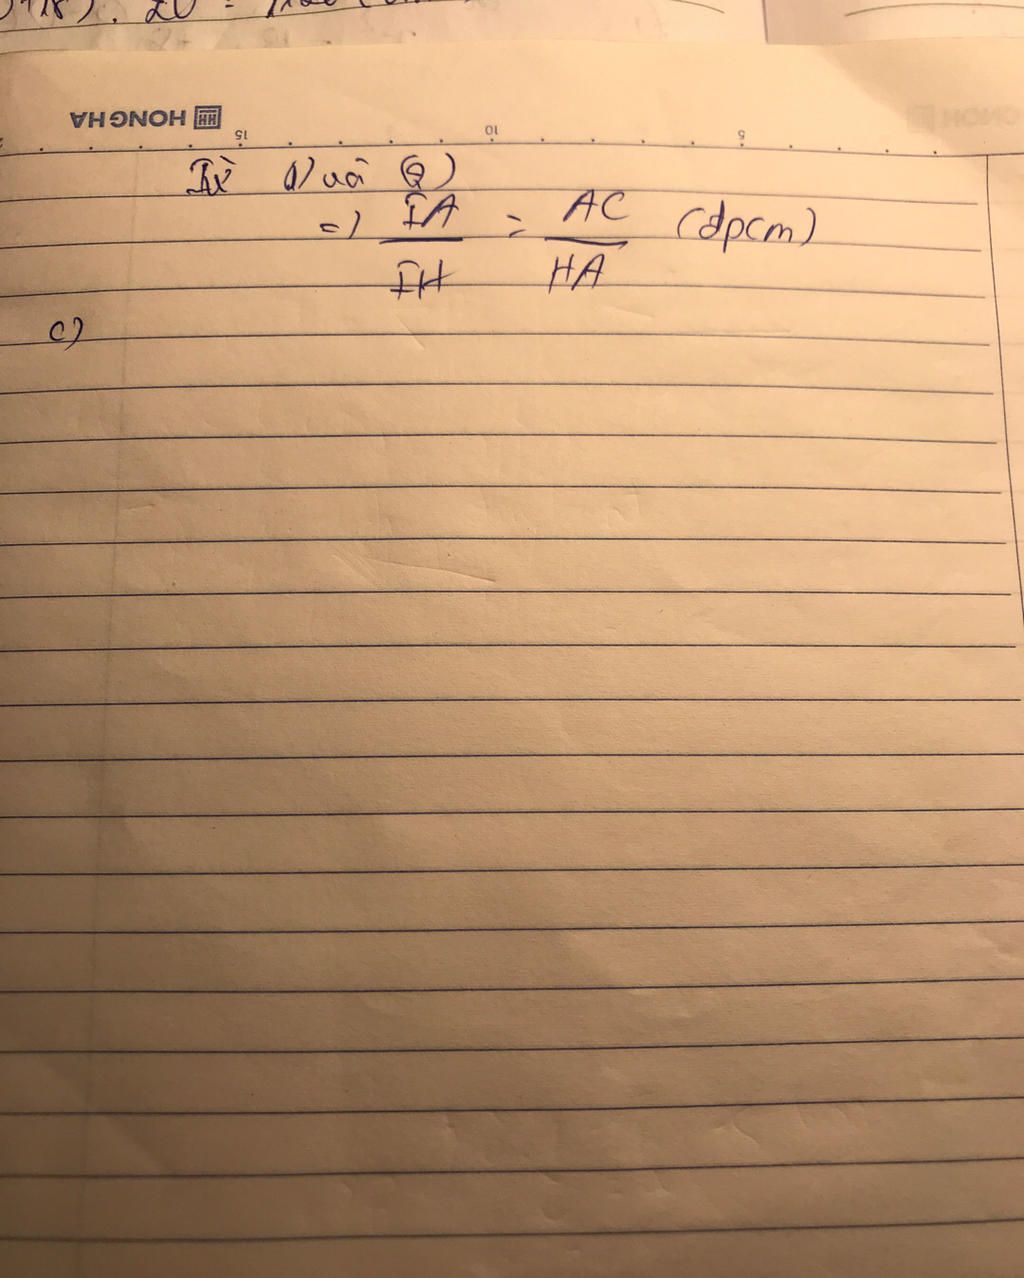 HONG HA
15 10 5
Từ (1) và (2)
=) IA/IH = AC/HA (đpcm)
c)